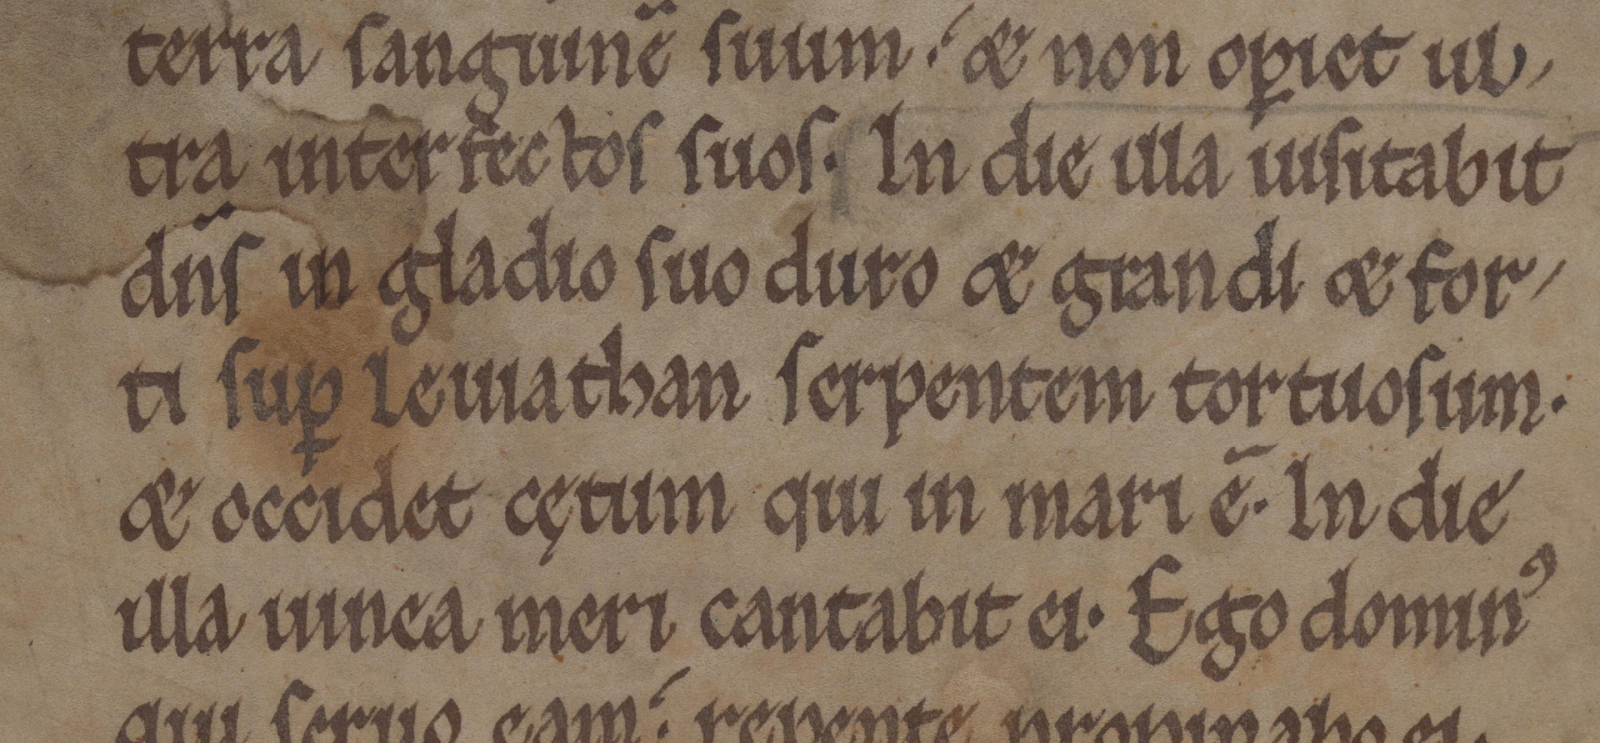 terra sanguinē suum · & non opiet ul-
tra interfectos suos. In die illa uisitabit
dn̄s in gladio suo duro & grandi & for-
ti sup̱ leuiathan serpentem tortuosum.
& occidet cętum qui in mari ē. In die
illa uinea meri cantabit ei. Ego dominꝰ
qui seruo eam: repente propinabo ei.